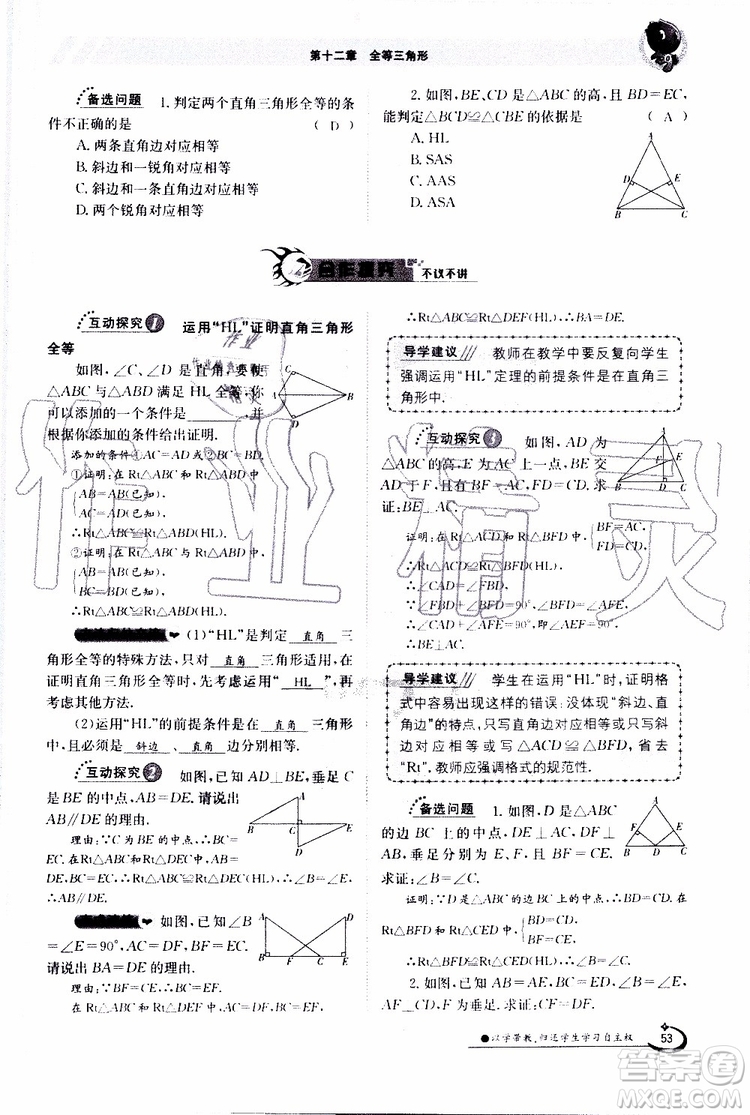 第十二章 全等三角形
备选问题 1. 判定两个直角三角形全等的条
件不正确的是 ( D )
A. 两条直角边对应相等
B. 斜边和一锐角对应相等
C. 斜边和一条直角边对应相等
D. 两个锐角对应相等
2. 如图,BE、CD是△ABC的高,且BD=EC,
能判定△BCD≌△CBE的依据是 ( A )
A. HL
B. SAS
C. AAS
D. ASA
A
D
E
B
C
不议不讲
互动探究1 运用“HL”证明直角三角形
全等
如图,∠C、∠D是直角,要使
△ABC与△ABD满足HL全等,你
可以添加的一个条件是 ,并
根据你添加的条件给出证明.
C
A
B
D
添加的条件①AC=AD或②BC=BD.
①证明:在Rt△ABC和Rt△ABD中
AB=AB(已知),
AC=AD(已知),
∴Rt△ABC≌Rt△ABD(HL).
②证明:在Rt△ABC与Rt△ABD中
AB=AB(已知),
BC=BD(已知),
∴Rt△ABC≌Rt△ABD(HL).
(1)“HL”是判定 直角 三
角形全等的特殊方法,只对 直角 三角形适用,在
证明直角三角形全等时,应先考虑“ HL ”,再考虑
其他方法.
(2)运用“HL”的前提条件是在 直角 三角形
中,且必须是 斜边 、 直角 边分别相等.
互动探究2 如图,已知AD⊥BE,垂足C
是BE的中点,AB=DE. 请说出
AB∥DE的理由.
A
B
C
E
D
理由:∵C为BE的中点,∴BC=
EC. 在Rt△ABC和Rt△DEC中,AB
=DE,BC=EC,∴Rt△ABC≌Rt△DEC(HL),∴∠B
=∠E,∴AB∥DE.
如图,已知∠B
=∠E=90°,AC=DF,BF=EC.
请说出BA=DE的理由.
A
D
B
F
C
E
理由:∵BF=CE,∴BC=EF.
在Rt△ABC和Rt△DEF中,BC=EF,AC=DF,
∴Rt△ABC≌Rt△DEF(HL),∴BA=DE.
导学建议 教师在教学中要反复向学生
强调运用“HL”定理的前提条件是在直角三
角形中.
互动探究3 如图,AD为
△ABC的高,E为AC上一点,BE交
AD于F,且有BF=AC,FD=CD. 求
证:BE⊥AC.
A
F
E
B
D
C
证明:在Rt△ACD和Rt△BFD中,
BF=AC,
FD=CD,
∴Rt△ACD≌Rt△BFD(HL).
∴∠CAD=∠FBD,
∵∠FBD+∠BFD=90°,∠BFD=∠AFE,
∴∠CAD+∠AFE=90°,即∠AEF=90°,
∴BE⊥AC.
导学建议 学生在运用“HL”时,证明格
式中容易出现这样的错误:没体现“斜边、直
角边”的特点,只写直角边对应相等或只写斜
边对应相等或写△ACD≌△BFD,省去
“Rt”. 教师应强调格式的规范性.
备选问题 1. 如图,D是△ABC
的边BC上的中点,DE⊥AC,DF⊥
AB,垂足分别为E,F,且BF=CE.
求证:∠B=∠C.
A
F
E
B
D
C
证明:∵D是△ABC的边BC上的中点,∴BD=CD. 在
Rt△BFD和Rt△CED中,
BD=CD,
BF=CE,
∴Rt△BFD≌Rt△CED(HL). ∴∠B=∠C.
2. 如图,∠ACB=90°,AC=BC,AE=BM,
AF⊥CE,F为垂足. 求证:CE=AM.
以学带教,归还学生学习自主权
53
作业精灵
答案圈
MXQE.COM